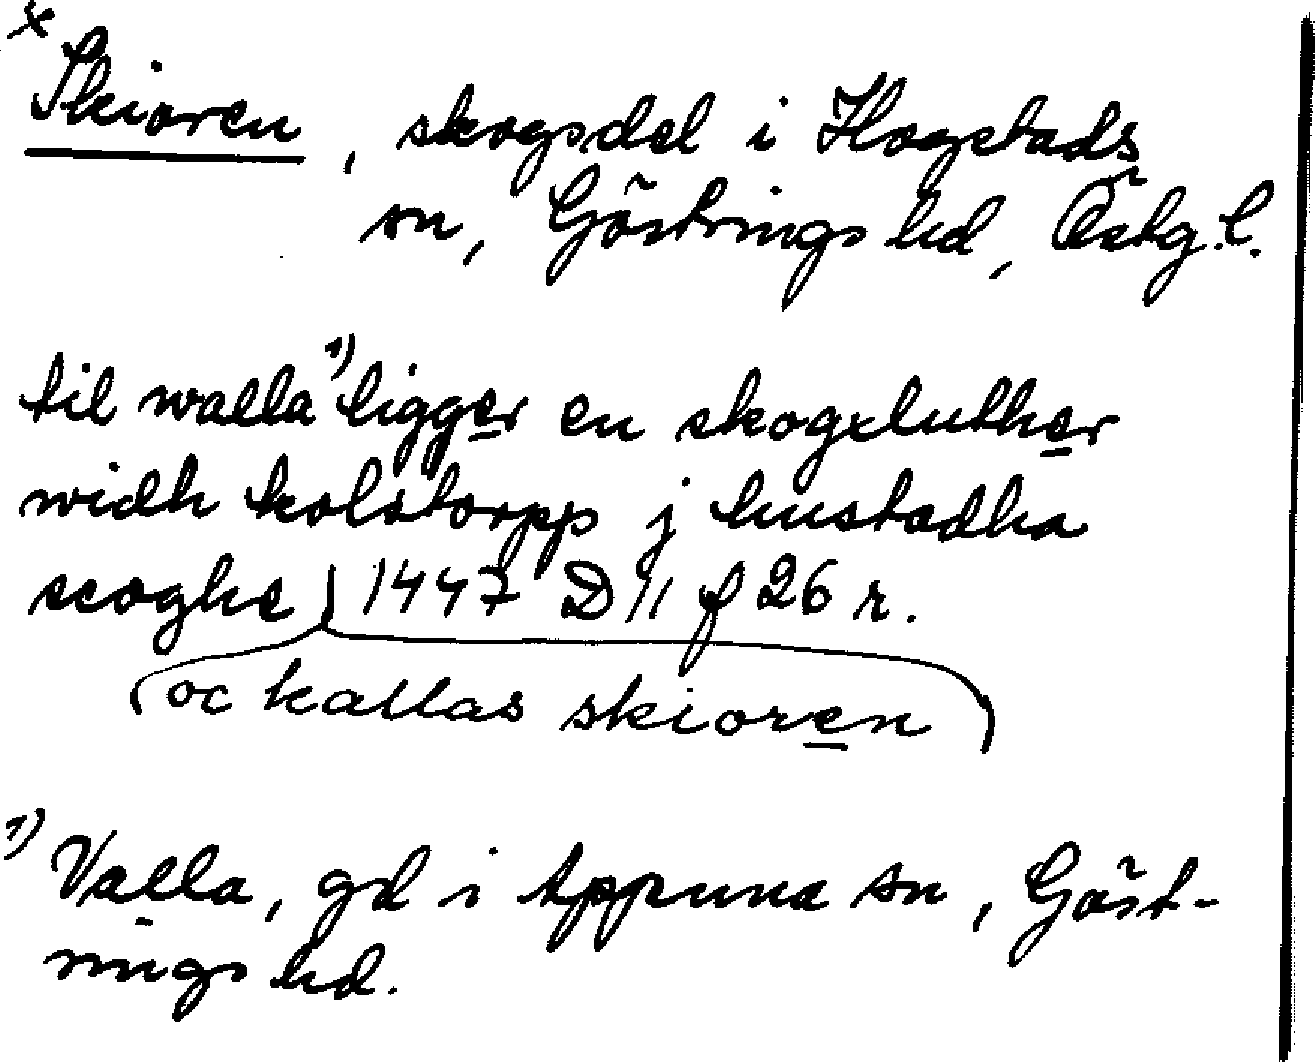 x
Skioren, skogsdel i Hogstads
sn, Göstrings hd, Östg. l.
til walla ¹⁾ ligger en skogxluther
widh kolstorpp j hustadha
scoghe) 1447 D 11 f 26 r.
(oc kallas skioren)
¹⁾ Valla, gd i Appuna sn, Göst-
rings hd.